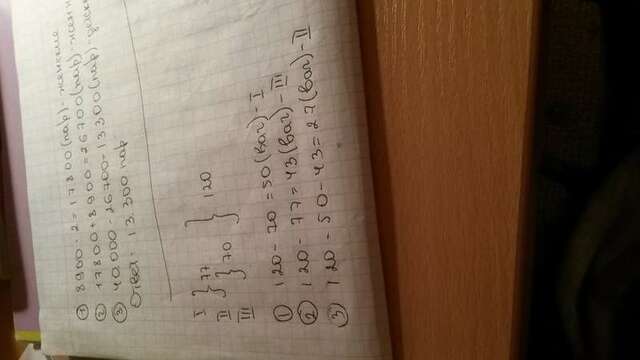 ① 8900 · 2 = 17800 (пар) - женские
② 17800 + 8900 = 26700 (пар)
③ 40.000 - 26700 = 13300 (пар)
Ответ: 13.300 пар
I } 77 } 120
II } 70
III
① 120 - 70 = 50 (ваг) - I
② 120 - 77 = 43 (ваг) - III
③ 120 - 50 - 43 = 27 (ваг) - II